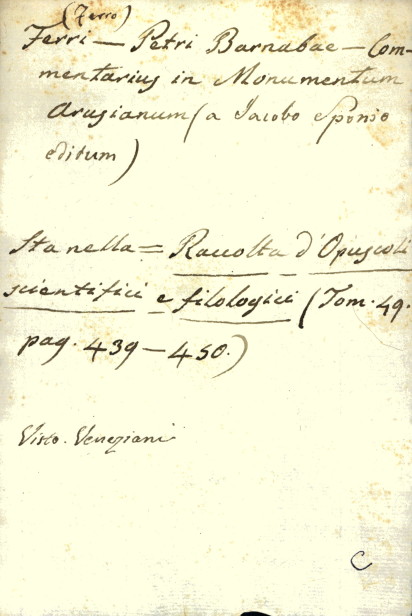 (Ferro)
Ferri — Petri Barnabae — Com-
mentarius in Monumentum
Arusianum (a Jacobo Sponio
editum)
Sta nella = Raccolta d'Opuscoli
scientifici e filologici (Tom. 49.
pag. 439 — 450.)
Visto. Veneziani
C